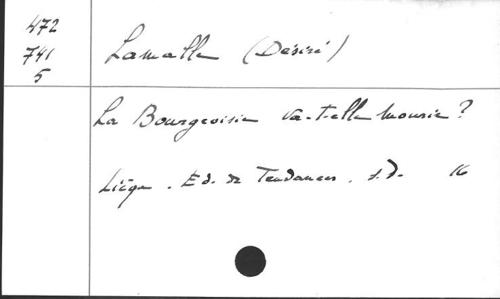 472
741
5
Lamalle (Désiré)
La Bourgeoisie va-t-elle mourir?
Liège. Ed. de Tendances. s.d. 16